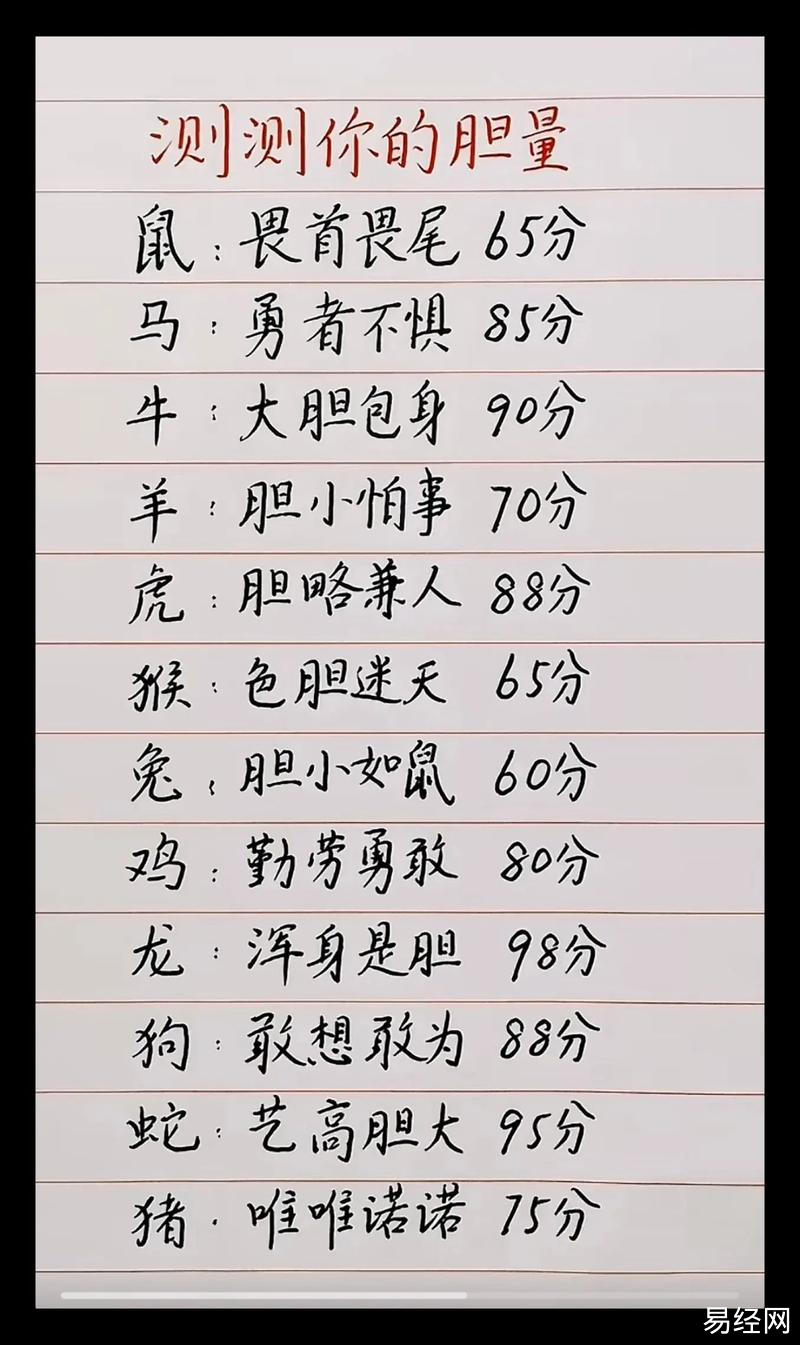 测测你的胆量
鼠：畏首畏尾 65分
马：勇者不惧 85分
牛：大胆包身 90分
羊：胆小怕事 70分
虎：胆略兼人 88分
猴：色胆迷天 65分
兔：胆小如鼠 60分
鸡：勤劳勇敢 80分
龙：浑身是胆 98分
狗：敢想敢为 88分
蛇：艺高胆大 95分
猪：唯唯诺诺 75分
易经网